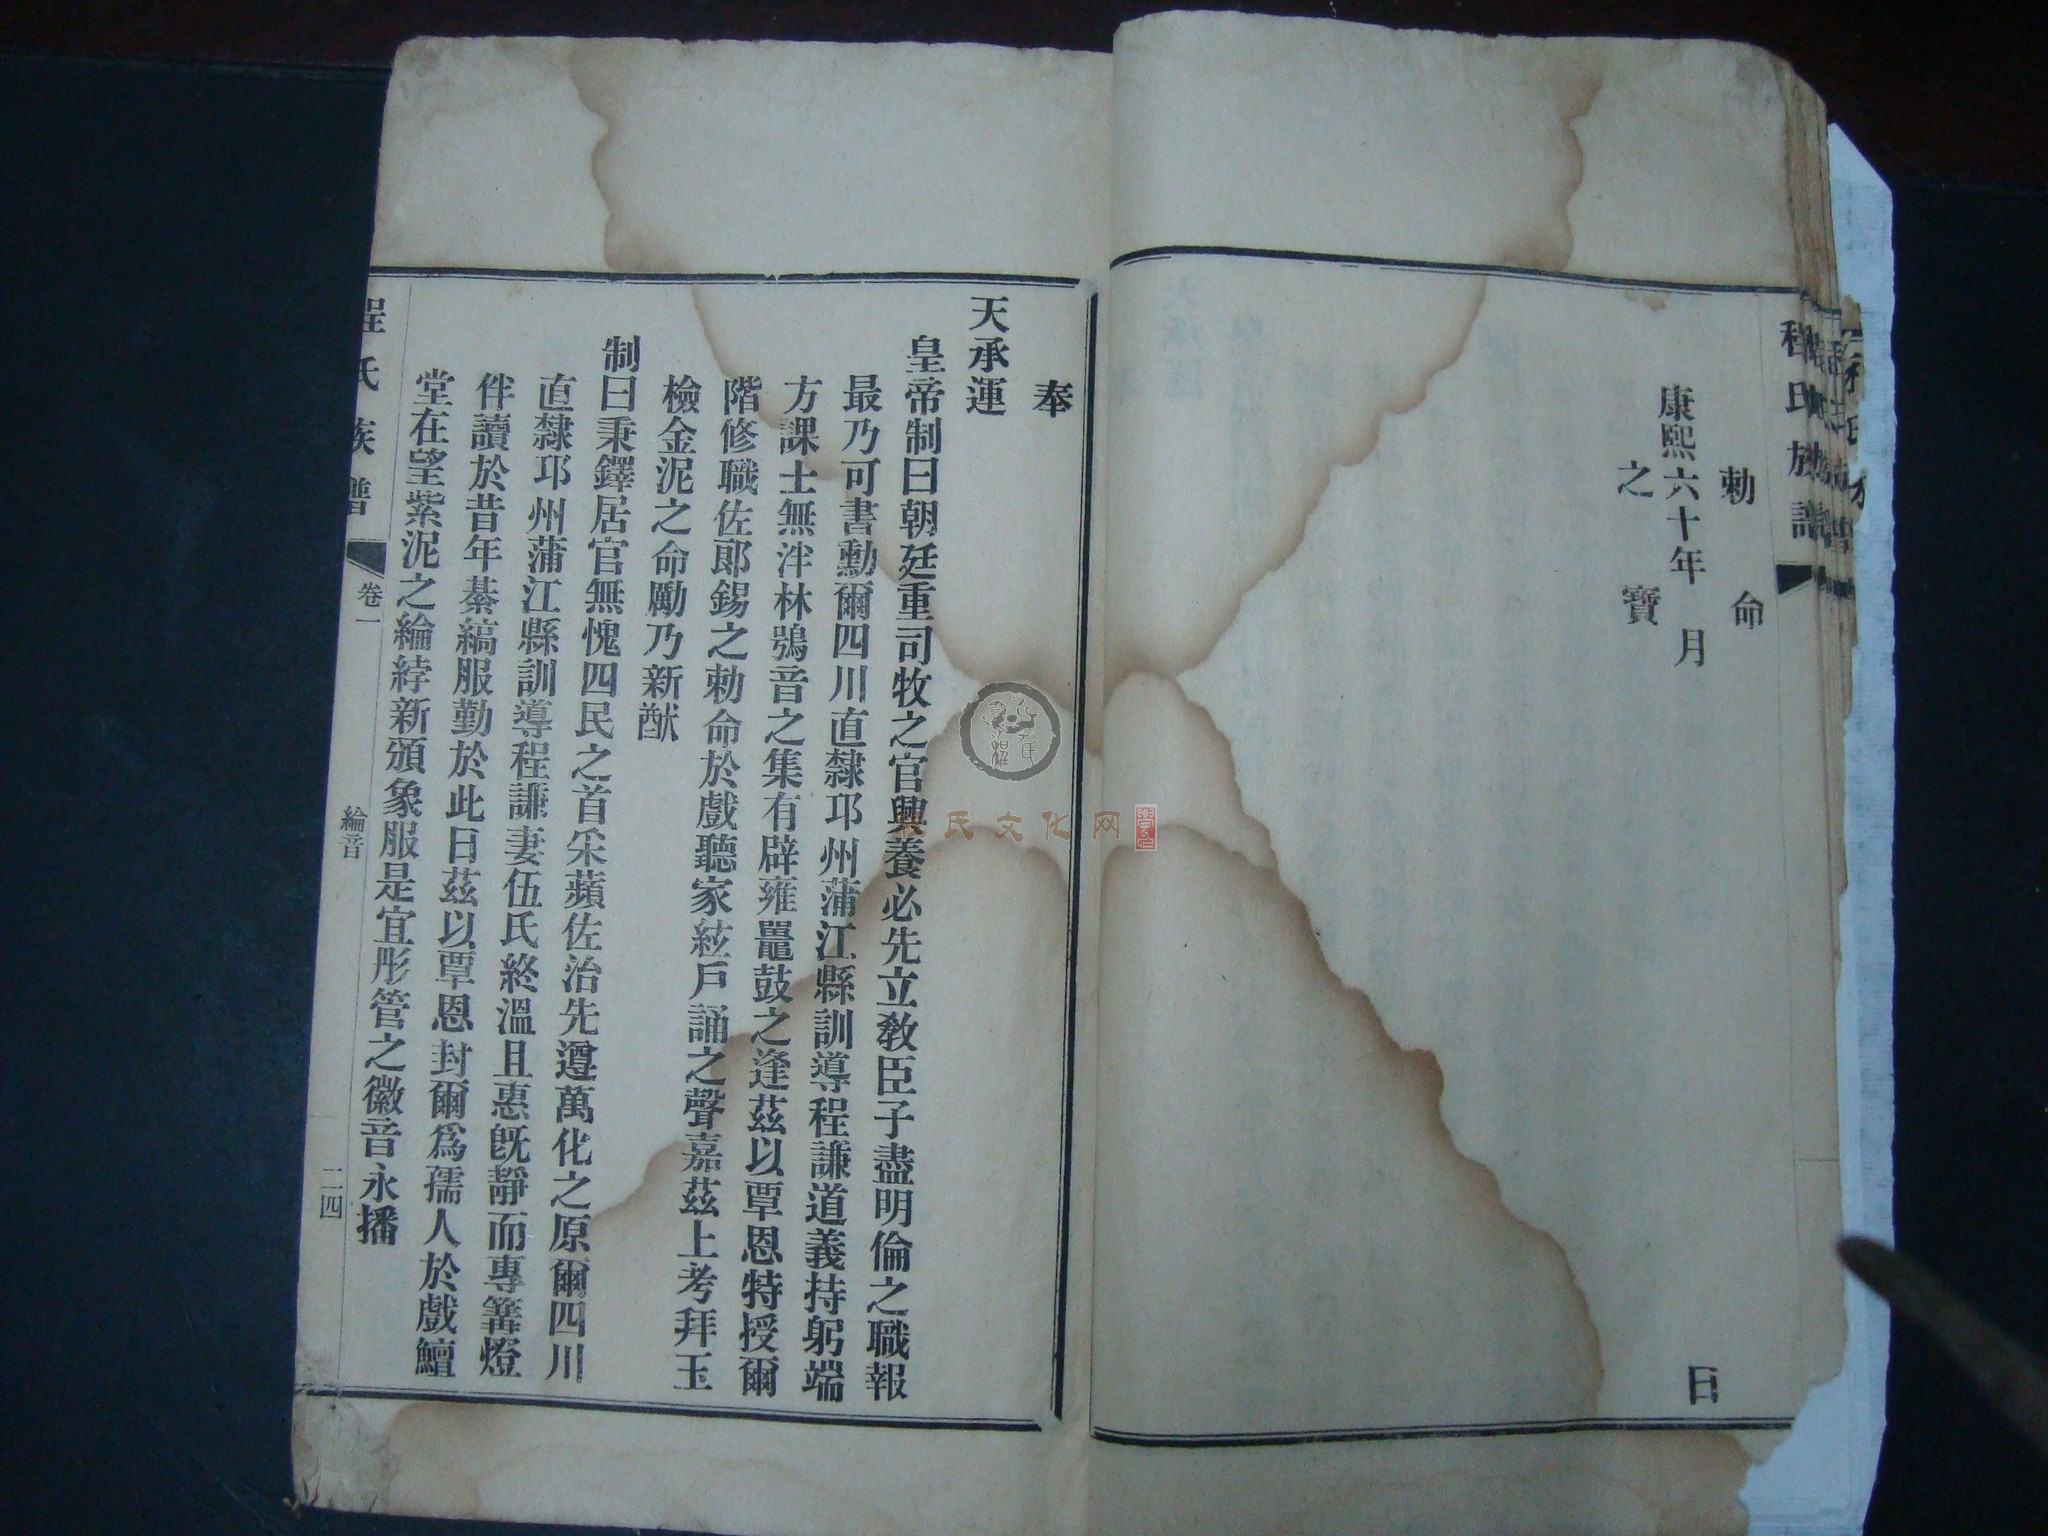 程氏族譜
勅命
康熙六十年 月 日
之寶
奉
天承運
皇帝制曰朝廷重司牧之官興養必先立敎臣子盡明倫之職報
最乃可書勳爾四川直隸邛州蒲江縣訓導程謙道義持躬端
方課士無泮林鴞音之集有辟雍鼉鼓之逢茲以覃恩特授爾
階修職佐郎錫之勅命於戲聽家絃戶誦之聲嘉茲上考拜玉
檢金泥之命勵乃新猷
制曰秉鐸居官無愧四民之首采蘋佐治先遵萬化之原爾四川
直隸邛州蒲江縣訓導程謙妻伍氏終溫且惠旣靜而專篝燈
伴讀於昔年綦縞服勤於此日茲以覃恩封爾爲孺人於戲鱣
堂在望紫泥之綸綍新頒象服是宜彤管之徽音永播
程氏族譜
卷一
綸音
二四
氏文化网